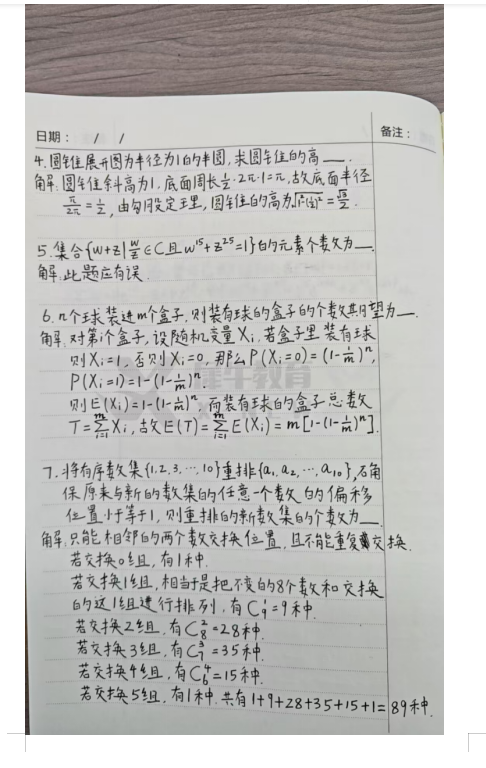 日期： / /
备注：
4.圆锥展开图为半径为1的半圆,求圆锥的高__.
解:圆锥斜高为1,底面周长½·2π·1=π,故底面半径
π/2π=½,由勾股定理,圆锥的高为√(1²-(½)²)=√3/2.
5.集合{w+z|w/z∈C且w¹⁵+z²⁵=1}的元素个数为__.
解:此题应有误.
6.n个球装进m个盒子,则装有球的盒子的个数期望为__.
解:对第i个盒子,设随机变量Xᵢ,若盒子里装有球
则Xᵢ=1,否则Xᵢ=0,那么P(Xᵢ=0)=(1-1/m)ⁿ,
P(Xᵢ=1)=1-(1-1/m)ⁿ.
则E(Xᵢ)=1-(1-1/m)ⁿ,而装有球的盒子总数
T=∑ᵢ₌₁ᵐXᵢ,故E(T)=∑ᵢ₌₁ᵐE(Xᵢ)=m[1-(1-1/m)ⁿ].
7.将有序数集{1,2,3,…,10}重排{a₁,a₂,…,a₁₀},确
保原来与新的数集的任意一个数的偏移
位置小于等于1,则重排的新数集的个数为__.
解:只能相邻的两个数交换位置,且不能重复交换.
若交换0组,有1种.
若交换1组,相当于是把不变的8个数和交换
的这1组进行排列,有C₉¹=9种.
若交换2组,有C₈²=28种.
若交换3组,有C₇³=35种.
若交换4组,有C₆⁴=15种.
若交换5组,有1种.共有1+9+28+35+15+1=89种.